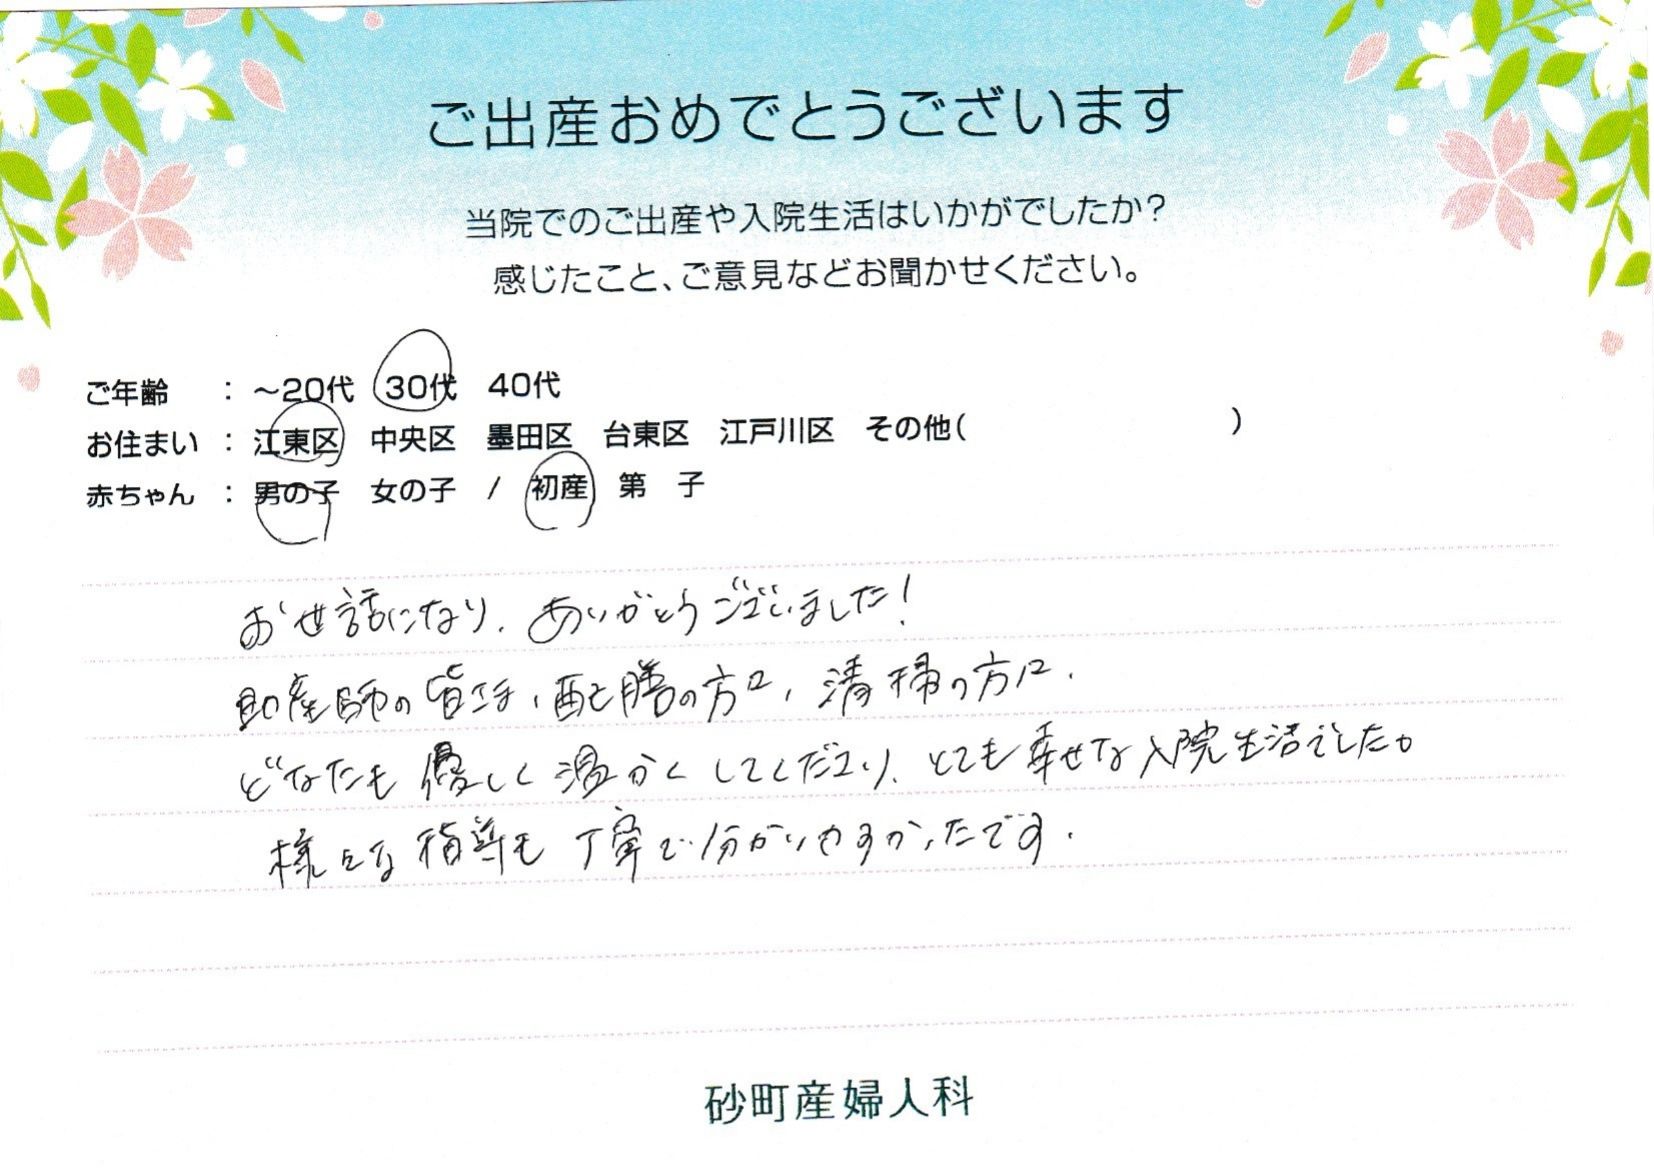 ご出産おめでとうございます
当院でのご出産や入院生活はいかがでしたか?
感じたこと、ご意見などお聞かせください。
ご年齢 : ～20代 30代 40代
お住まい : 江東区 中央区 墨田区 台東区 江戸川区 その他( )
赤ちゃん : 男の子 女の子 / 初産 第 子
お世話になり、ありがとうございました!
助産師の皆さま、配膳の方々、清掃の方々、
どなたも優しく温かくしてくださり、とても幸せな入院生活でした。
様々な指導も丁寧で分かりやすかったです。
砂町産婦人科